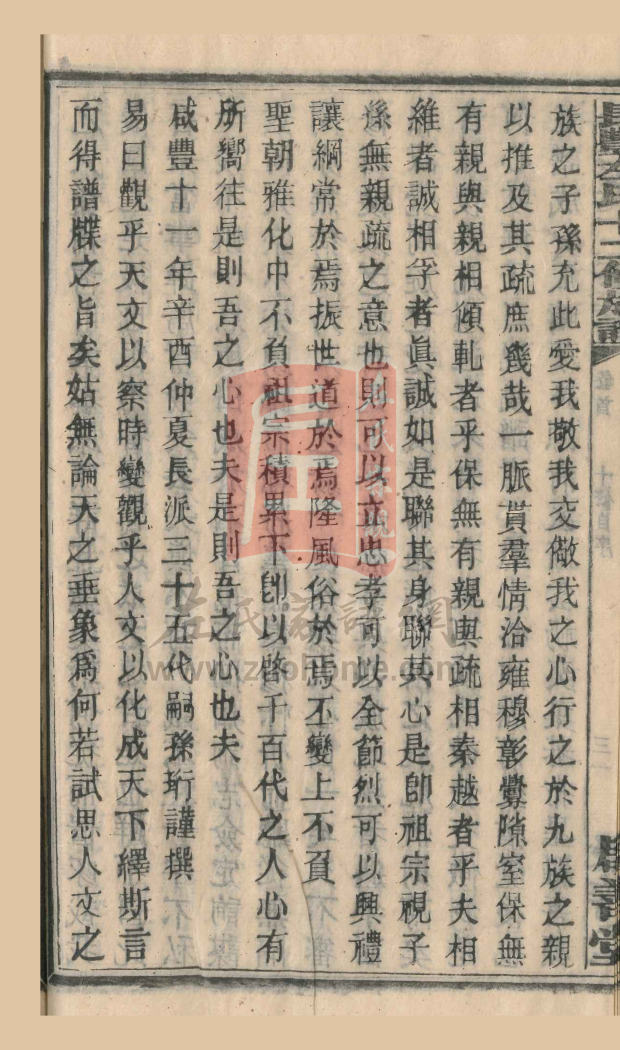 族之子孫充此愛我敬我交儆我之心行之於九族之親
以推及其疏庶幾哉一脈貫羣情洽雍穆彰釁隙窒保無
有親與親相傾軋者乎保無有親與疏相秦越者乎夫相
維者誠相孚者眞誠如是聯其身聯其心是卽祖宗視子
孫無親疏之意也則可以立忠孝可以全節烈可以興禮
讓綱常於焉振世道於焉隆風俗於焉丕變上不負
聖朝雅化中不負祖宗積累下卽以啓千百代之人心有
所嚮往是則吾之心也夫是則吾之心也夫
咸豐十一年辛酉仲夏長派三十五代嗣孫珩謹撰
易曰觀乎天文以察時變觀乎人文以化成天下繹斯言
而得譜牒之旨矣姑無論天之垂象爲何若試思人文之
左氏家譜網
www.zuohome.com